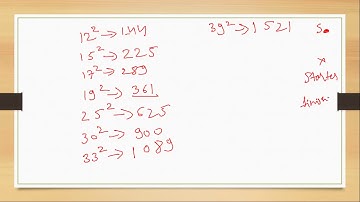 12² → 144
15² → 225
17² → 289
19² → 361
25² → 625
30² → 900
33² → 1089
39² → 1521
S.
x
Starter